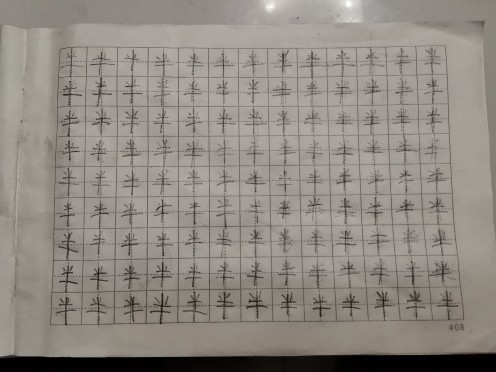 半半半半半半半半半半半半半
半半半半半半半半半半半半半
半半半半半半半半半半半半半
半半半半半半半半半半半半半
半半半半半半半半半半半半半
半半半半半半半半半半半半半
半半半半半半半半半半半半半
半半半半半半半半半半半半半
半半半半半半半半半半半半半
408